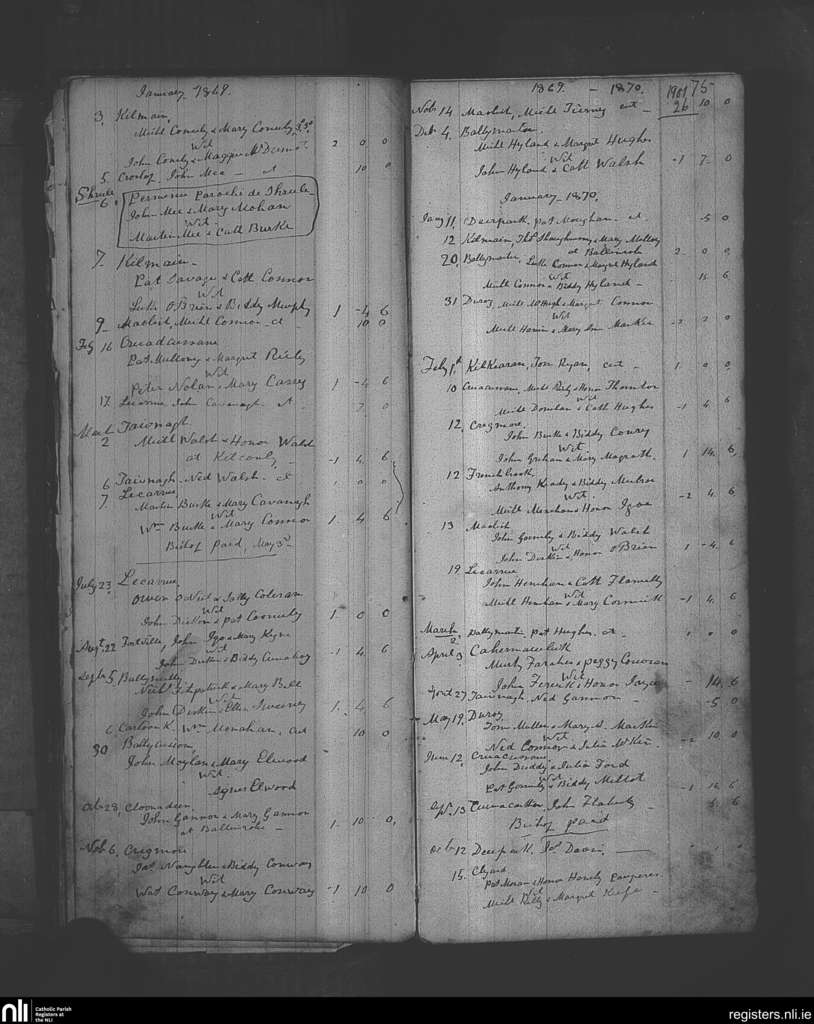 January 1869.
3. Kilmain,
Michl Comely & Mary Comely, 3, 3º
Wit
John Comely & Maggie McDermot 2 0 0
5 Crosloy, John Mee — ct 10 0
Shrule
6. Permissu Parochi de Shrule
John Mee & Mary Mohan
Wit
Martin Mee & Cath Burke
7 Kilmain.
Pat Savage & Cath Connor
Wit
Luke O'Brien & Biddy Murphy 1 -4 6
9 Maolish, Michl Connor ct 10 0
Feb 16 Cruadcussane
Pat Mullowny & Margret Riely
Wit
Peter Nolan & Mary Casey 1 -4 6
17. Lecarrue John Cavanagh. ct 7. 0
March Tawnagh
2 Michl Walsh & Honor Walsh
at Kilconly -1 4 6
6 Tawnagh Ned Walsh. ct 1 0 0
7. Lecarrue,
Martin Burke & Mary Cavanagh
Wit
Wm Burke & Mary Connor 1. 4 6
Bishop paid, May 3d
July 23, Lecarrue,
Owen O'Neil & Sally Coleran
Wit
John Dirkin & Pat Comely 1. 0 0
Augt 22 Foxville, John Igo & Mary Kyne
Wit
John Dirkin & Biddy -1 4 6
Septb 5, Ballynulty
Nichs Fitzpatrick & Mary Bell
Wit
John Dirkin & Ellen Sweeney 1. 4 6
6 Carloon K. Wm Monahan, ct 10 0
30 Ballycusson,
John Moylan & Mary Elwood
Wit.
Agnes Elwood
Octb 28, Cloonadeen,
John Gannon & Mary Gannon
at Ballinrobe - 1. 10 0,
Novb 6. Cregmore
Jas Naughten & Biddy Conway
Wit
Wat Conway & Mary Conway -1 10 0
1869. — 1870. 1901 75
26
Novb 14 Maolish, Michl Tierney ct - 10 0
Decb 4. Ballymartin.
Michl Hyland & Margret Hughes
Wit
John Hyland & Cath Walsh -1 7- 0
January - 1870.
Jany 11. Deerpark, Pat Moughan. ct -5 0
12 Kilmain, Thos Shaughnessy & Mary Molloy
at Ballinrobe 2- 0 0,
20, Ballymartin, Luke Connor & Margret Hyland
Wit
Michl Connor & Biddy Hyland - 15 6
31 Duroy, Michl McHugh & Margret Connor
Wit
Michl & Mary Ann Markee -2 2 0
Feby 1st Kilkearan, Tom Ryan, ct 1. 0 0,
10 Cruacussan, Michl Riely & Honor Thornton
Wit
Michl Donelan & Cath Hughes -1 4 6
12, Cregmore,
John Burke & Biddy Conry
Wit
John Graham & Mary Magrath. 1 14 6,
12 Frenchbrook
Anthony Keady & Biddy Mulroe
Wit.
Michl Merchan & Honor Igoe -2 4 6
13 Maolish
John Gormly & Biddy Walsh
Wit
John Dirkin & Honor O'Brien 1 -4. 6
19 Lecarrue
John Henehan & Cath Flannelly
Wit
Michl Henehan & Mary Cormick -1 4. 6
March
2 Ballymartin, Pat Hughes. ct - 1 0 0
April 3 Cahernacullick
Murty Faraher & Peggy Corcoran
Wit
John Ferick & Honor Joyce - 14. 6
27 Tawnagh Ned Gannon - -5 0
May 19, Duroy
Tom Mullen & Mary A. Markee
Wit
Ned Connor & Julia McKen -2 10 0
June 12, Cruacussane
John Duddy & Julia Ford
Wit
Pat Gormly & Biddy Mellot -1 14 6
Sept. 13 John Flaherty - 6 6
Bishop paid
Octb 12 Deerpark, Jas Davin —
15. Clyard
Pat Moran & Honor Hanely Pauperes
Wit
Michl Reily & Margret Keefe -
nli Catholic Parish
Registers at
the NLI
registers.nli.ie